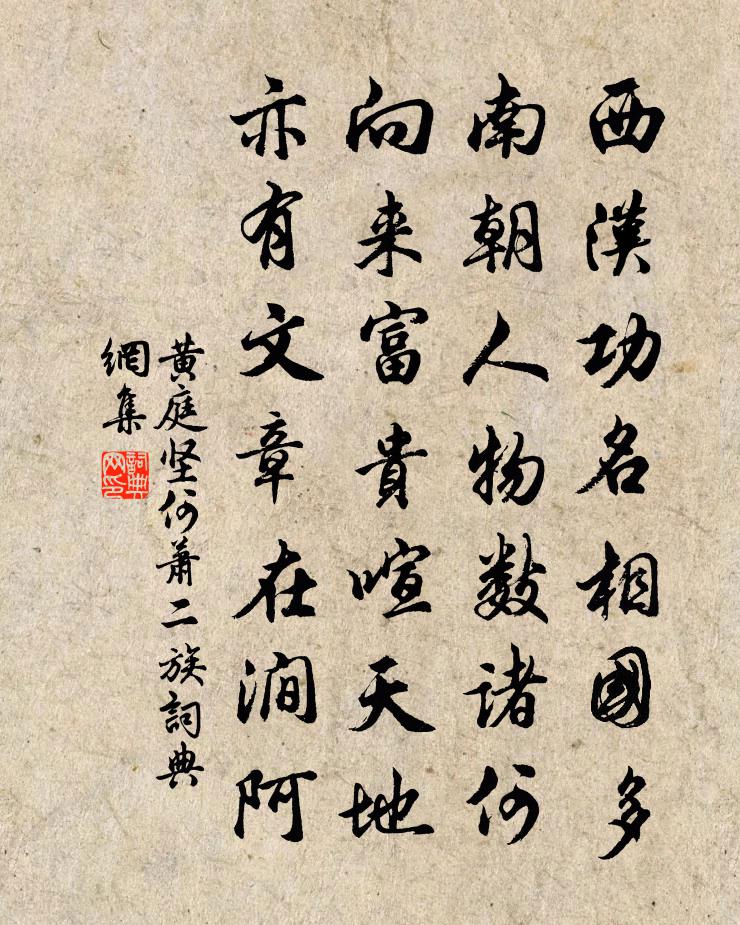 西漢功名相國多
南朝人物數諸何
向来富貴喧天地
亦有文章在澗阿
黄庭坚何萧二族詞典
網集
詞典
网印